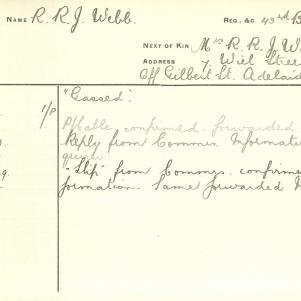 NAME R. R. J. Webb. REG. &C. 43rd B
NEXT OF KIN Mrs R. R. J. W
ADDRESS 7, Wil Stree
Off Gilbert St. Adelaid
"Gassed".
1/P confirmed. forwarded
Reply from Commun. Informati
"Slip" from Commns. confirme
9. formation. Same forwarded